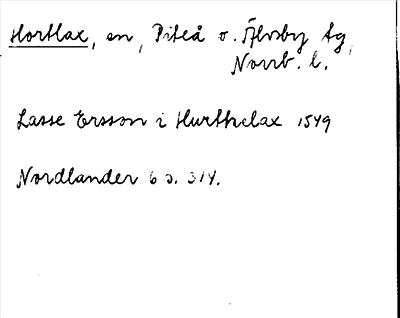 Hortlax, sn, Piteå o. Älvsby tg,
Norrb. l.
Lasse Ersson i Hurthelax 1549
Nordlander 6 s. 314.